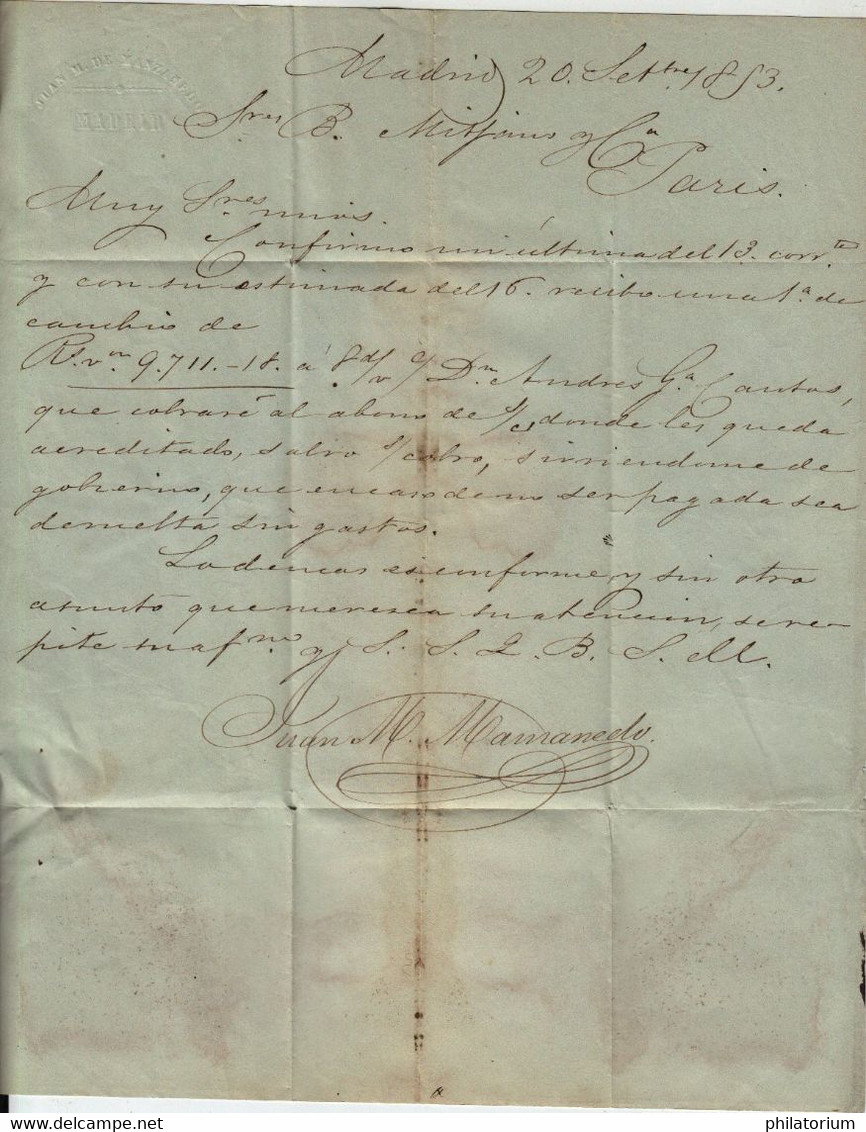 JUAN M. DE MANZANEDO
MADRID
Madrid 20. Setbre 1853.
Sres B. Mitjans y Ca
Paris.
Muy Sres mios.
Confirmo mi última del 13. corrte
y con su estimada del 16. recibo una 1a de
cambio de
Rs. vn. 9.711.-18. á 8 d/v c/ Dn. Andres Ga. Cantos,
que cobraré al abono de s/c, donde les queda
acreditado, salvo s/cobro, sirviendome de
gobierno, que en caso de no ser pagada sea
devuelta sin gastos.
Lo demas es conforme y sin otro
asunto que meresca su atencion, se re-
pite su afmo. y S. S. Q. B. S. M.
Juan M. Manzanedo.
philatorium.com